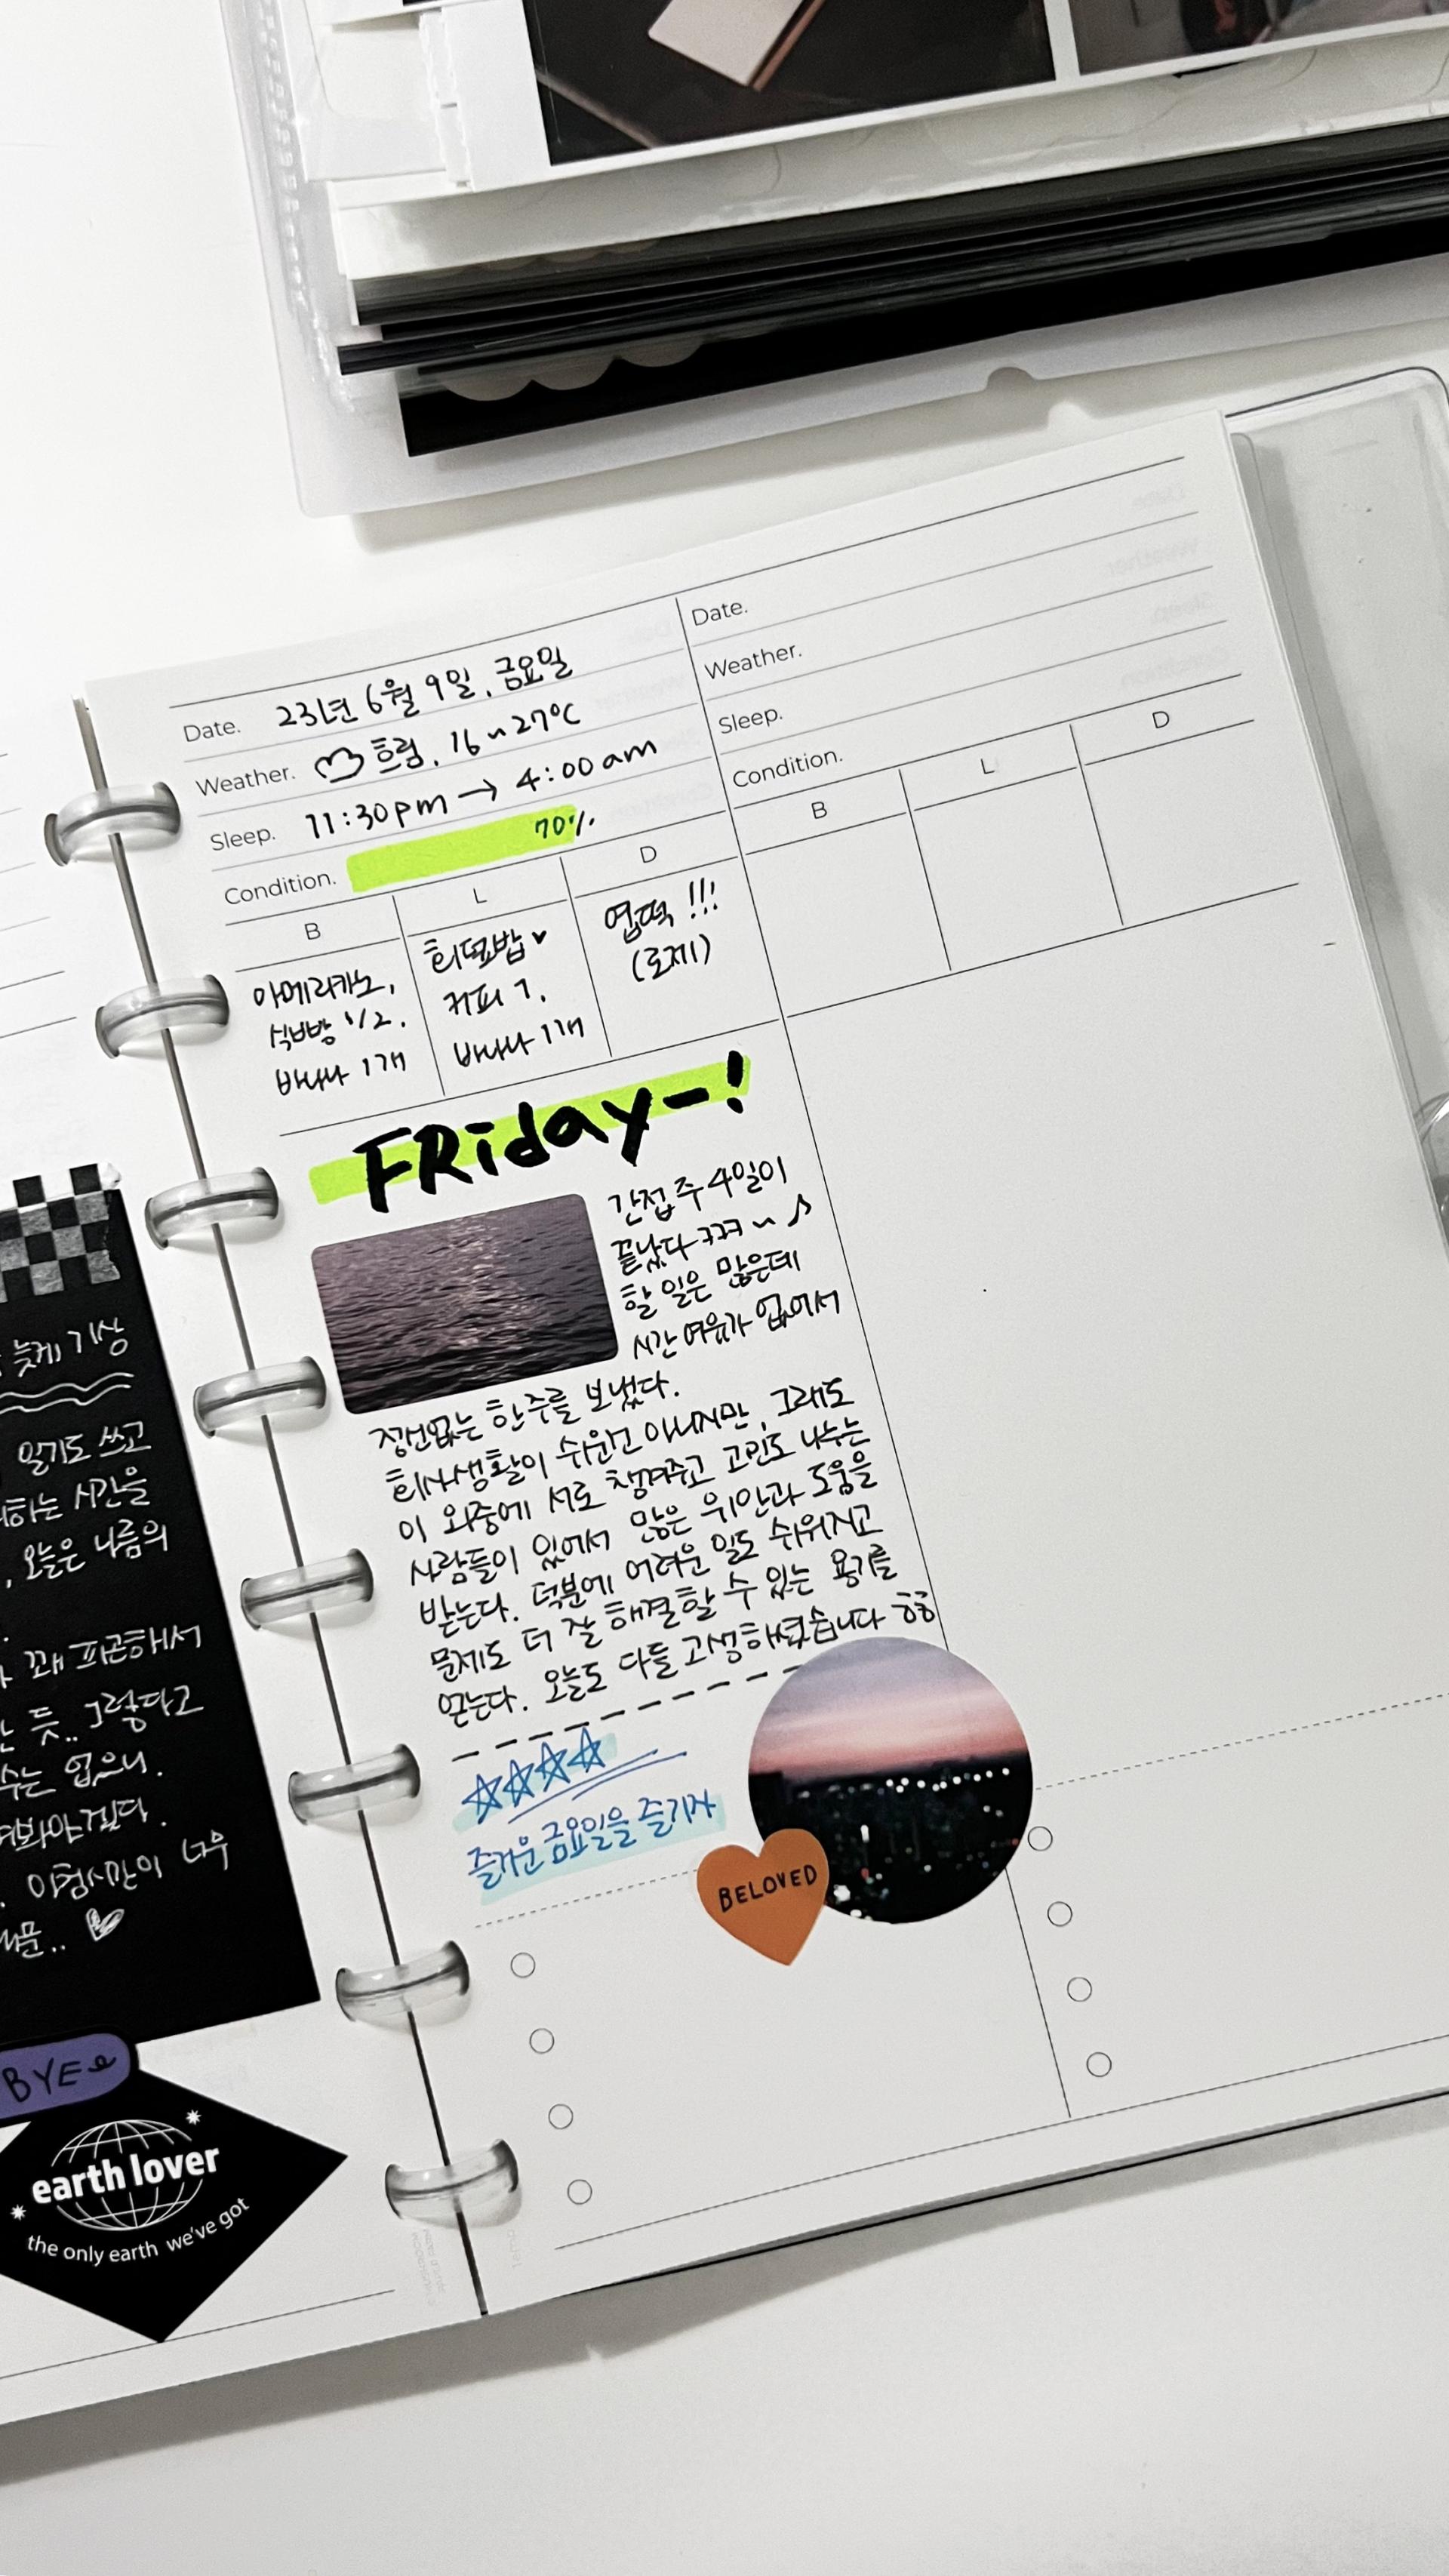 늦게 기상
일기도 쓰고
하는 시간을
, 오늘은 나름의
꽤 피곤해서
듯.. 그렇다고
수는 없으니.
봐야겠다.
이럴시간이 너무
BYE
earth lover
the only earth we've got
Date. 23년 6월 9일, 금요일
Weather. 흐림, 16~27°C
Sleep. 11:30pm → 4:00am
Condition. 70%
B L D
아메리카노,
식빵 1/2,
바나나 1개
회덮밥♥
커피 1,
바나나 1개
엽떡 !!!
(로제)
FRiday-!
간접 주4일이
끝났다 ㅋㅋㅋ ~ ♪
할 일은 많은데
시간 여유가 없어서
정신없는 한주를 보냈다.
회사생활이 쉬운건 아니지만, 그래도
이 와중에 서로 챙겨주고 고민도 나누는
사람들이 있어서 많은 위안과 도움을
받는다. 덕분에 어려운 일도 쉬워지고
문제도 더 잘 해결할 수 있는 용기를
얻는다. 오늘도 다들 고생하셨습니다
☆☆☆☆
즐거운 금요일을 즐기자
BELOVED
Date.
Weather.
Sleep.
Condition.
B L D